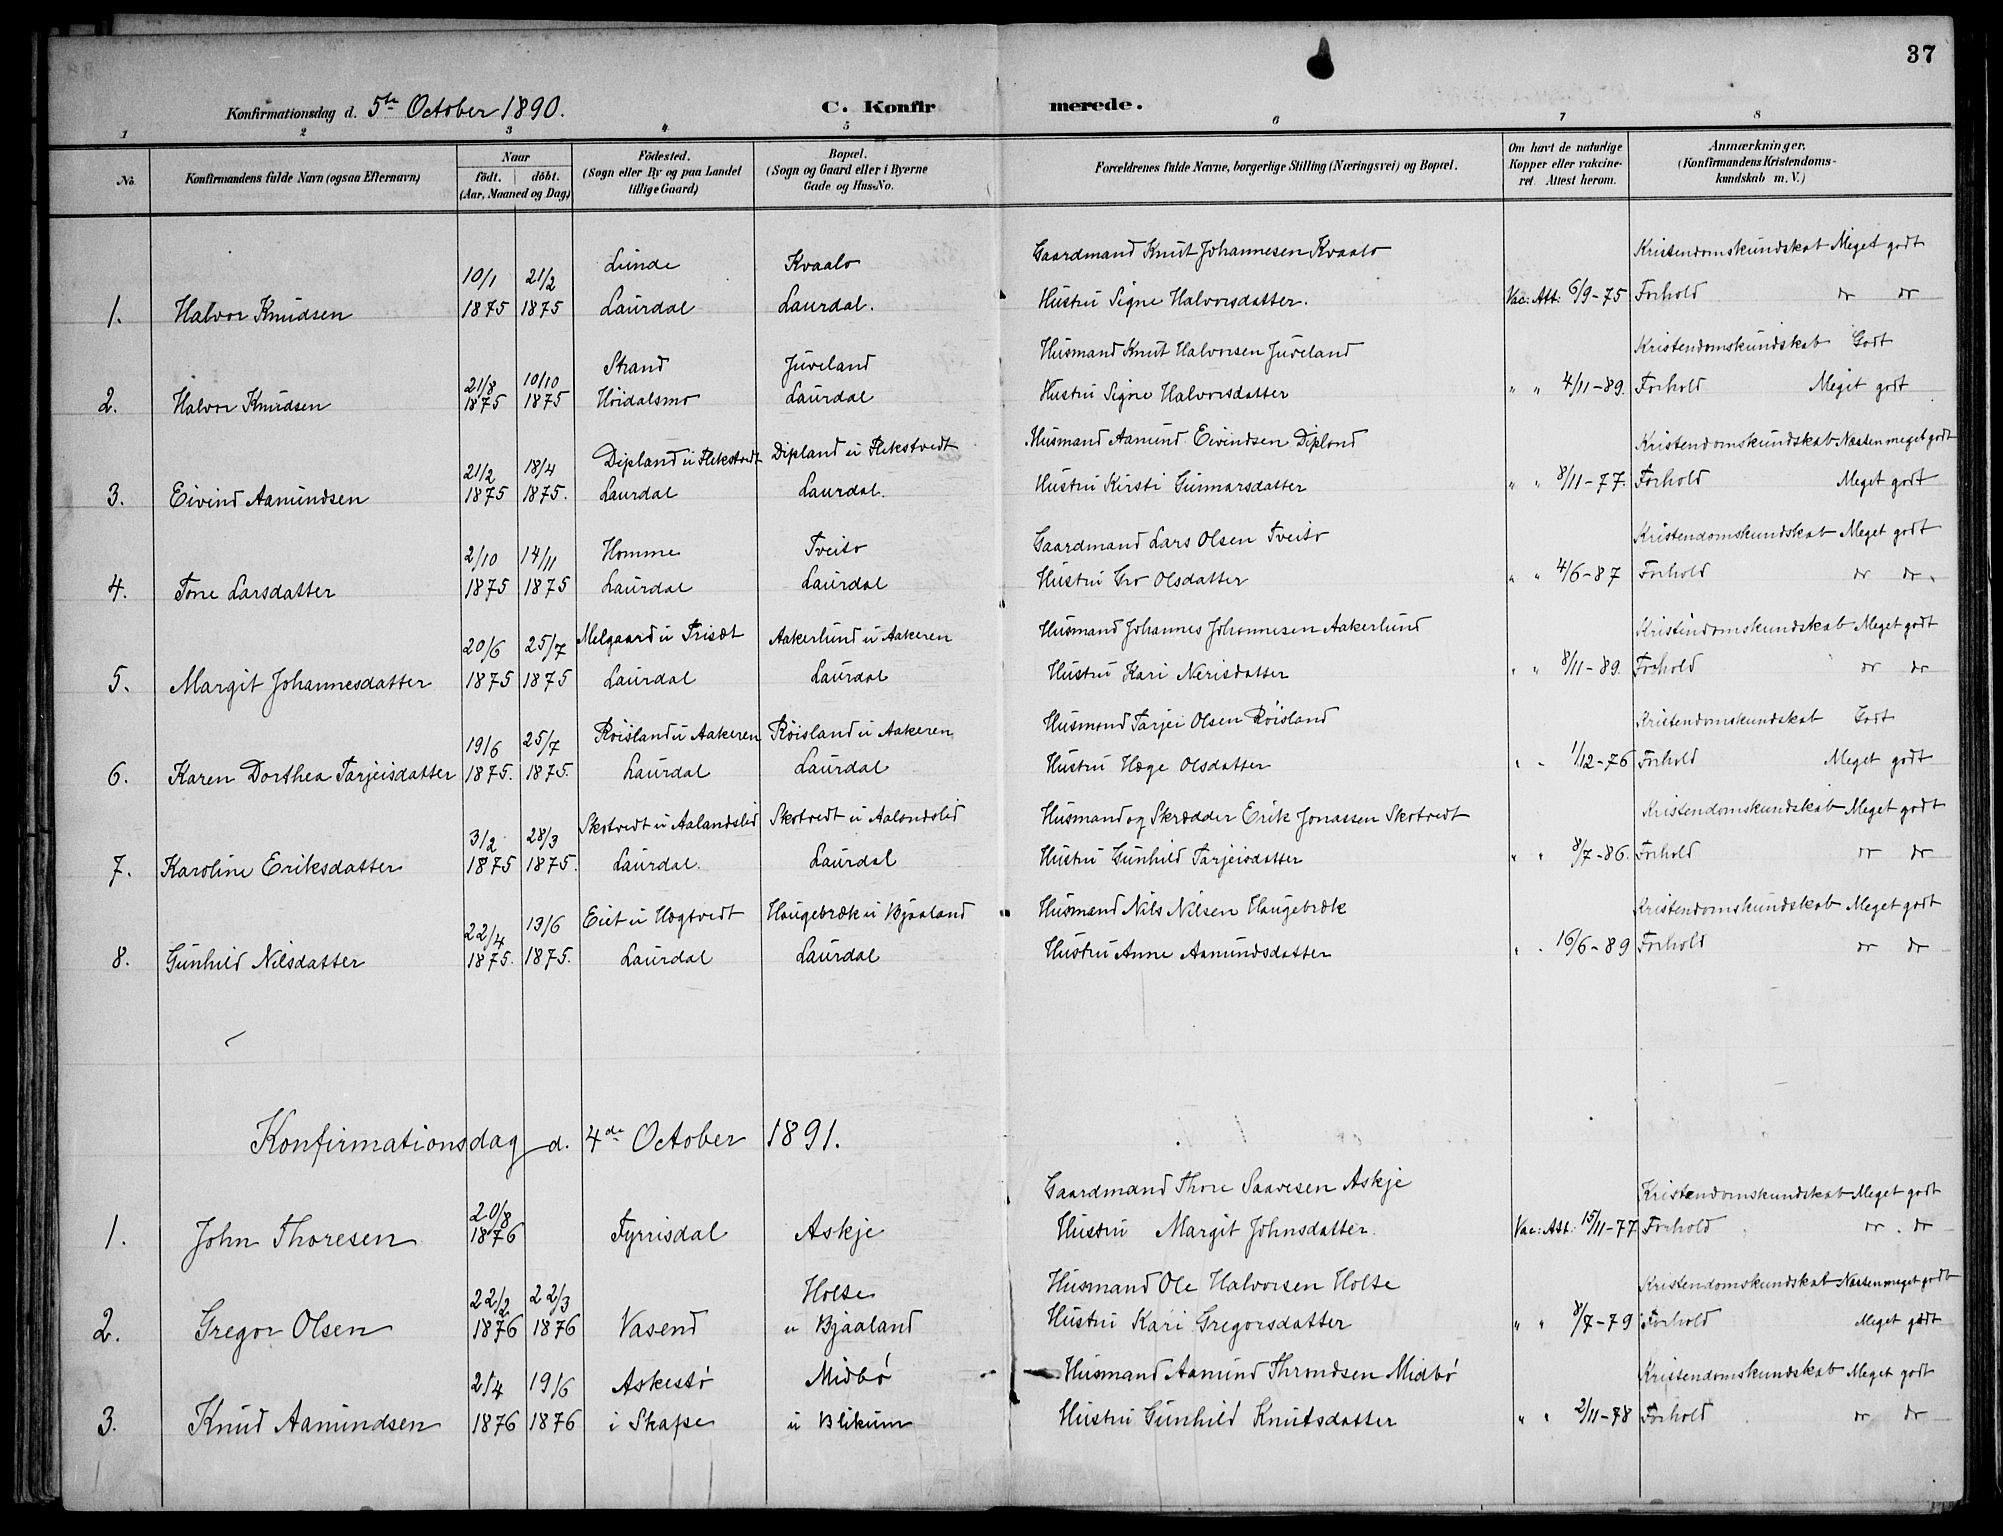 37
Konfirmationsdag d. 5te October 1890.
C. Konfirmerede.
1 2 3 4 5 6 7 8
No. Konfirmandens fulde Navn (ogsaa Efternavn) Naar født. døbt. (Aar, Maaned og Dag) Fødested. (Sogn eller By og paa Landet tillige Gaard) Bopæl. (Sogn og Gaard eller i Byerne Gade og Hus-No. Forældrenes fulde Navne, borgerlige Stilling (Næringsvei) og Bopæl. Om havt de naturlige Kopper eller vakcineret. Attest herom. Anmærkninger. (Konfirmandens Kristendomskundskab m. V.)
10/1 21/2 Lunde Kvaalo Gaardmand Knut Johannesen Kvaalo Kristendomskundskab Meget godt
1. Halvor Knudsen 1875 1875 Laurdal Laurdal. Hustru Signe Halvorsdatter. Vac: Att: 6/9-75 Forhold do do
21/8 10/10 Strand Juveland Husmand Knut Halvorsen Juveland Kristendomskundskab Godt
2. Halvor Knudsen 1875 1875 Høidalsmo Laurdal Hustru Signe Halvorsdatter " " 4/11-89. Forhold Meget godt
21/2 18/4 Dipland u Flekstvedt Dipland u Flekstvedt Husmand Aamund Eivindsen Dipland Kristendomskundskab Næsten meget godt
3. Eivind Aamundsen 1875 1875. Laurdal Laurdal. Hustru Kirsti Gunnarsdatter " " 8/11-77. Forhold Meget godt
2/10 14/11 Homme Tveito Gaardmand Lars Olsen Tveito Kristendomskundskab Meget godt
4. Tone Larsdatter 1875 1875 Laurdal Laurdal Hustru Gro Olsdatter " " 4/6-87 Forhold do do.
20/6 25/7 Melgaard u Trisæt Aakerlund u Aakeren Husmand Johannes Johannesen Aakerlund Kristendomskundskab Meget godt
5. Margit Johannesdatter 1875 1875 Laurdal Laurdal Hustru Kari Nerisdatter " " 8/11-89. Forhold do do
19/6 25/7 Røisland u Aakeren Røisland u Aakeren Husmand Tarjei Olsen Røisland Kristendomskundskab Godt
6. Karen Dorthea Tarjeisdatter 1875. 1875. Laurdal Laurdal Hustru Hæge Olsdatter " " 1/12-76 Forhold Meget godt
3/2 28/3 Skotvedt u Aalandslid Skotvedt u Aalandslid Husmand og Skrædder Erik Jonassen Skotvedt Kristendomskundskab Meget godt
7. Karoline Eriksdatter 1875 1875. Laurdal. Laurdal Hustru Gunhild Tarjeisdatter " " 8/7-86. Forhold do do
22/4 13/6 Eiet u Hægtvedt Haugebræk u Bjaaland Husmand Nils Nilsen Haugebræk Kristendomskundskab Meget godt
8. Gunhild Nilsdatter 1875. 1875. Laurdal Laurdal Hustru Anne Aamundsdatter " " 16/6-89 Forhold do do
Konfirmationsdag d. 4de October 1891.
20/8 Gaardmand Thore Saavesen Askje Kristendomskundskab Meget godt
1. John Thoresen 1876 Fyrrisdal Askje Hustru Margit Johnsdatter. Vac: Att: 15/11-77 Forhold do do
22/2 22/3 Holte Husmand Ole Halvorsen Holte Kristendomskundskab Næsten meget godt
2. Gregor Olsen 1876 1876 Vasend u Bjaaland Hustru Kari Gregorsdatter " " 8/7-79 Forhold Meget godt
2/4 19/6 Askestø Midbø Husmand Aamund Throndsen Midbø Kristendomskundskab Meget godt
3. Knud Aamundsen 1876 1876 i Skafse u Blikum Hustru Gunhild Knutsdatter " " 2/11-78 Forhold do do